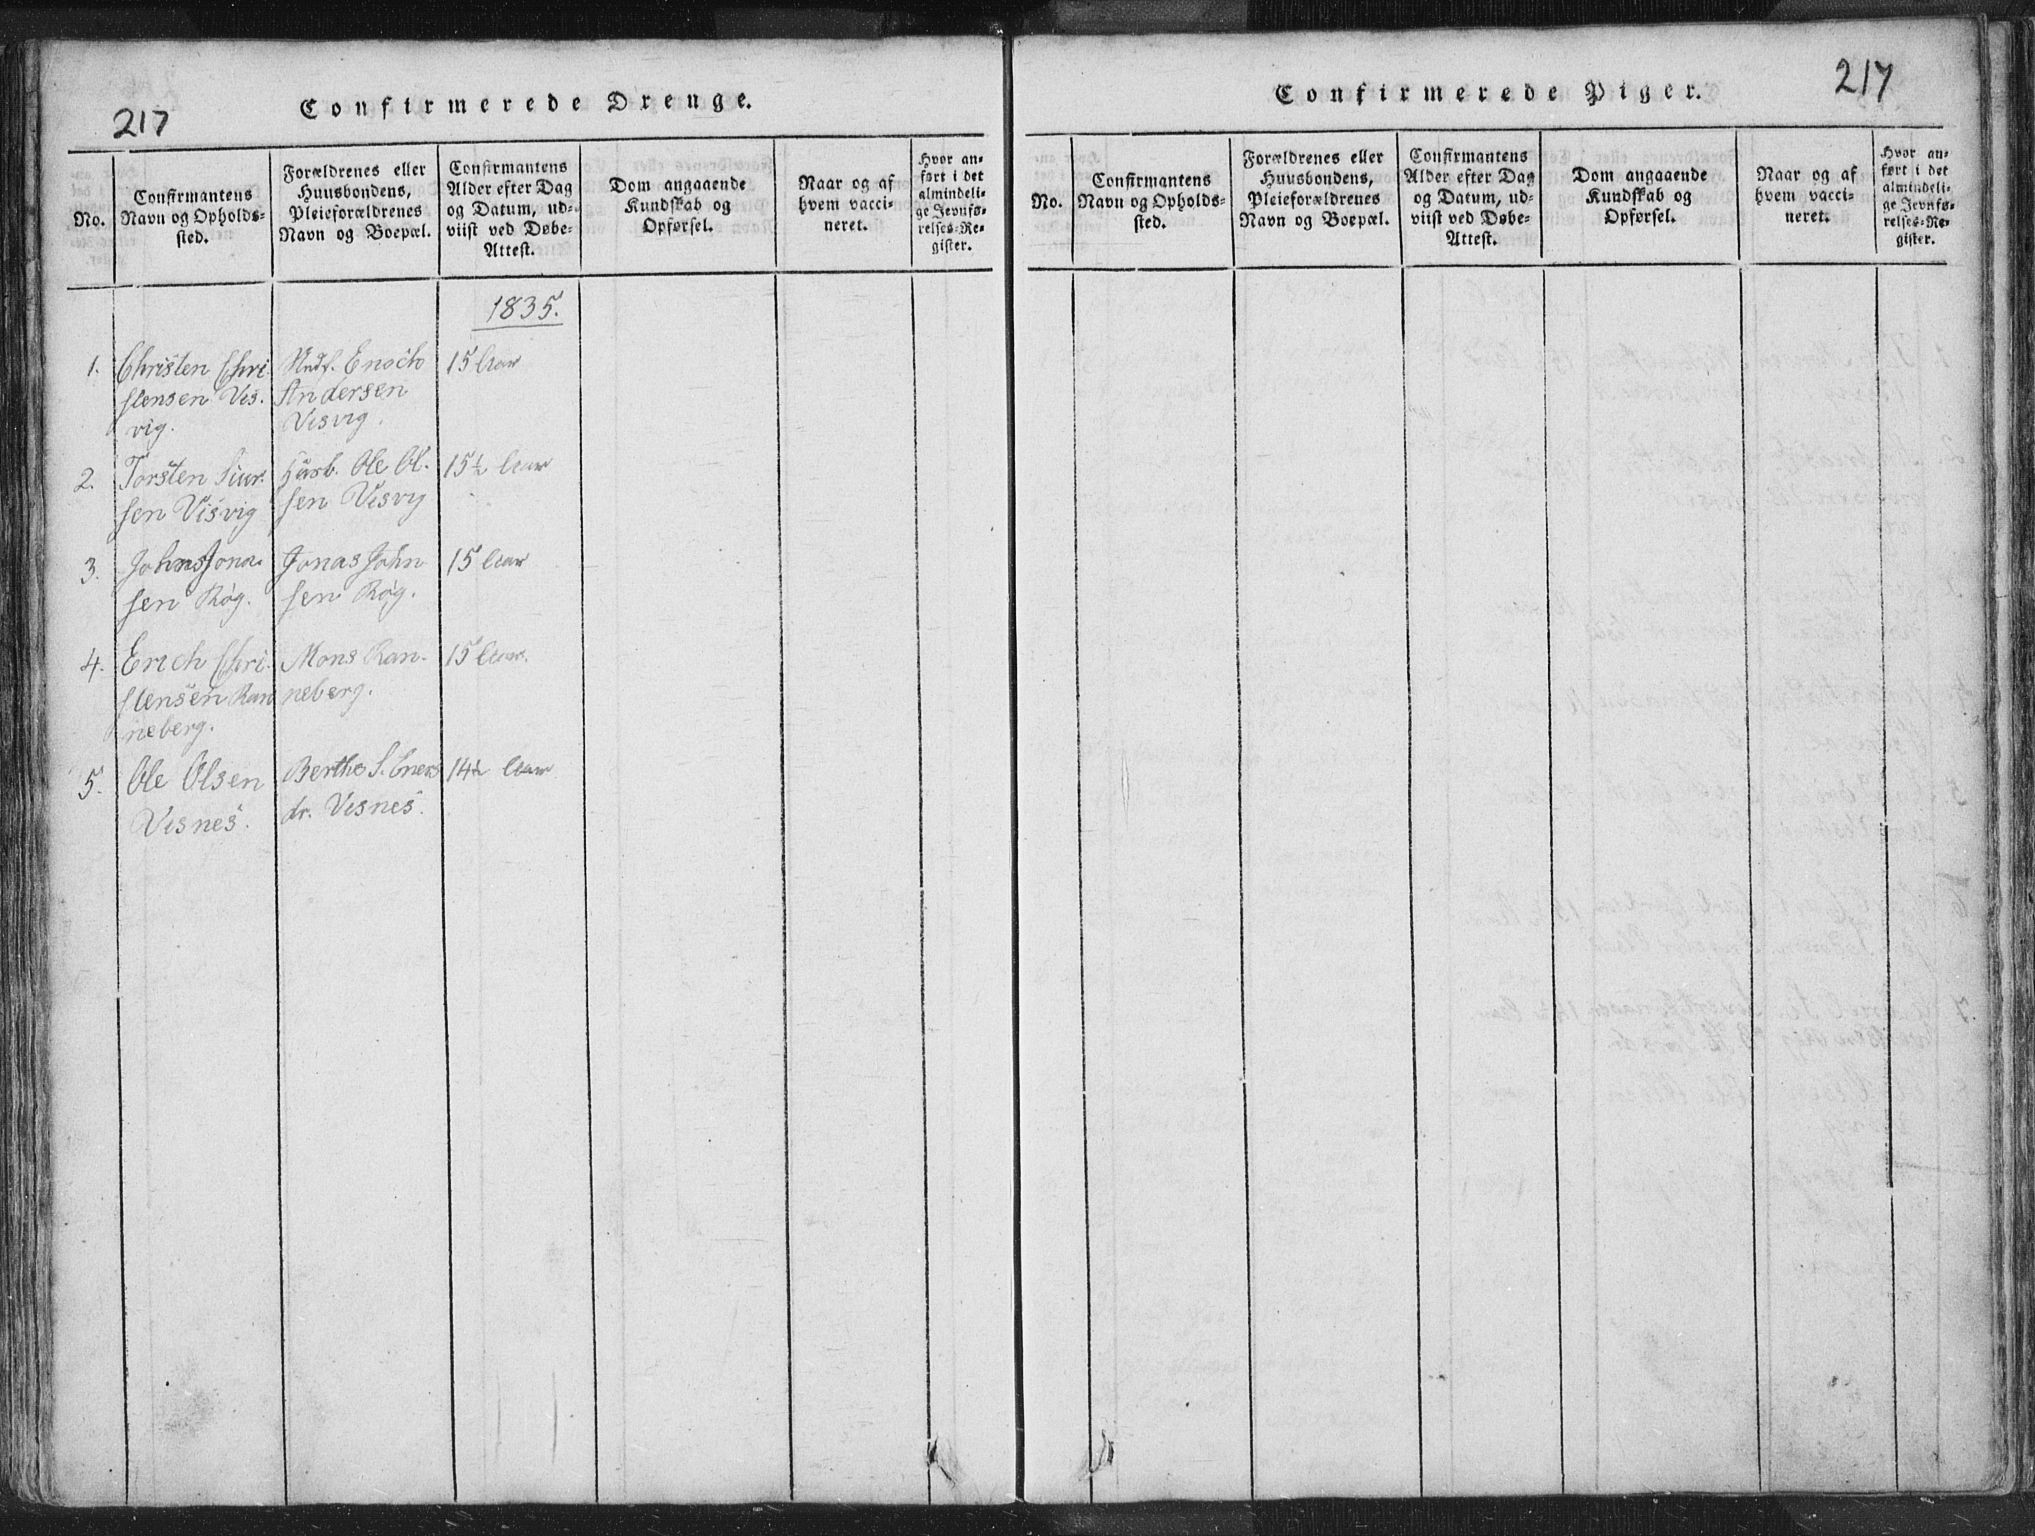 217
Confirmerede Drenge.
No.
Confirmantens
Navn og Opholds-
sted.
Forældrenes eller
Huusbondens,
Pleieforældrenes
Navn og Boepæl.
Confirmantens
Alder efter Dag
og Datum, ud-
viist ved Døbe-
Attest.
Dom angaaende
Kundskab og
Opførsel.
Naar og af
hvem vacci-
neret.
Hvor an-
ført i det
almindeli-
ge Jevnfø-
relses-Re-
gister.
1835.
1.
Christen Chri
stensen Vis-
vig.
Enoch
Andersen
Visvig.
15 Aar
2.
Torsten Siur-
sen Visvig
Ole Ol-
sen Visvig
15½ Aar
3.
Johns Jona-
sen Røg.
Jonas John
sen Røg.
15 Aar
4.
Erich Chri-
stensen Ran
neberg.
Mons Ran-
neberg.
15 Aar.
5.
Ole Olsen
Visnes.
Berthe S.
dr. Visnes.
14½ Aar
217
Confirmerede Piger.
No.
Confirmantens
Navn og Opholds-
sted.
Forældrenes eller
Huusbondens,
Pleieforældrenes
Navn og Boepæl.
Confirmantens
Alder efter Dag
og Datum, ud-
viist ved Døbe-
Attest.
Dom angaaende
Kundskab og
Opførsel.
Naar og af
hvem vacci-
neret.
Hvor an-
ført i det
almindeli-
ge Jevnfø-
relses-Re-
gister.